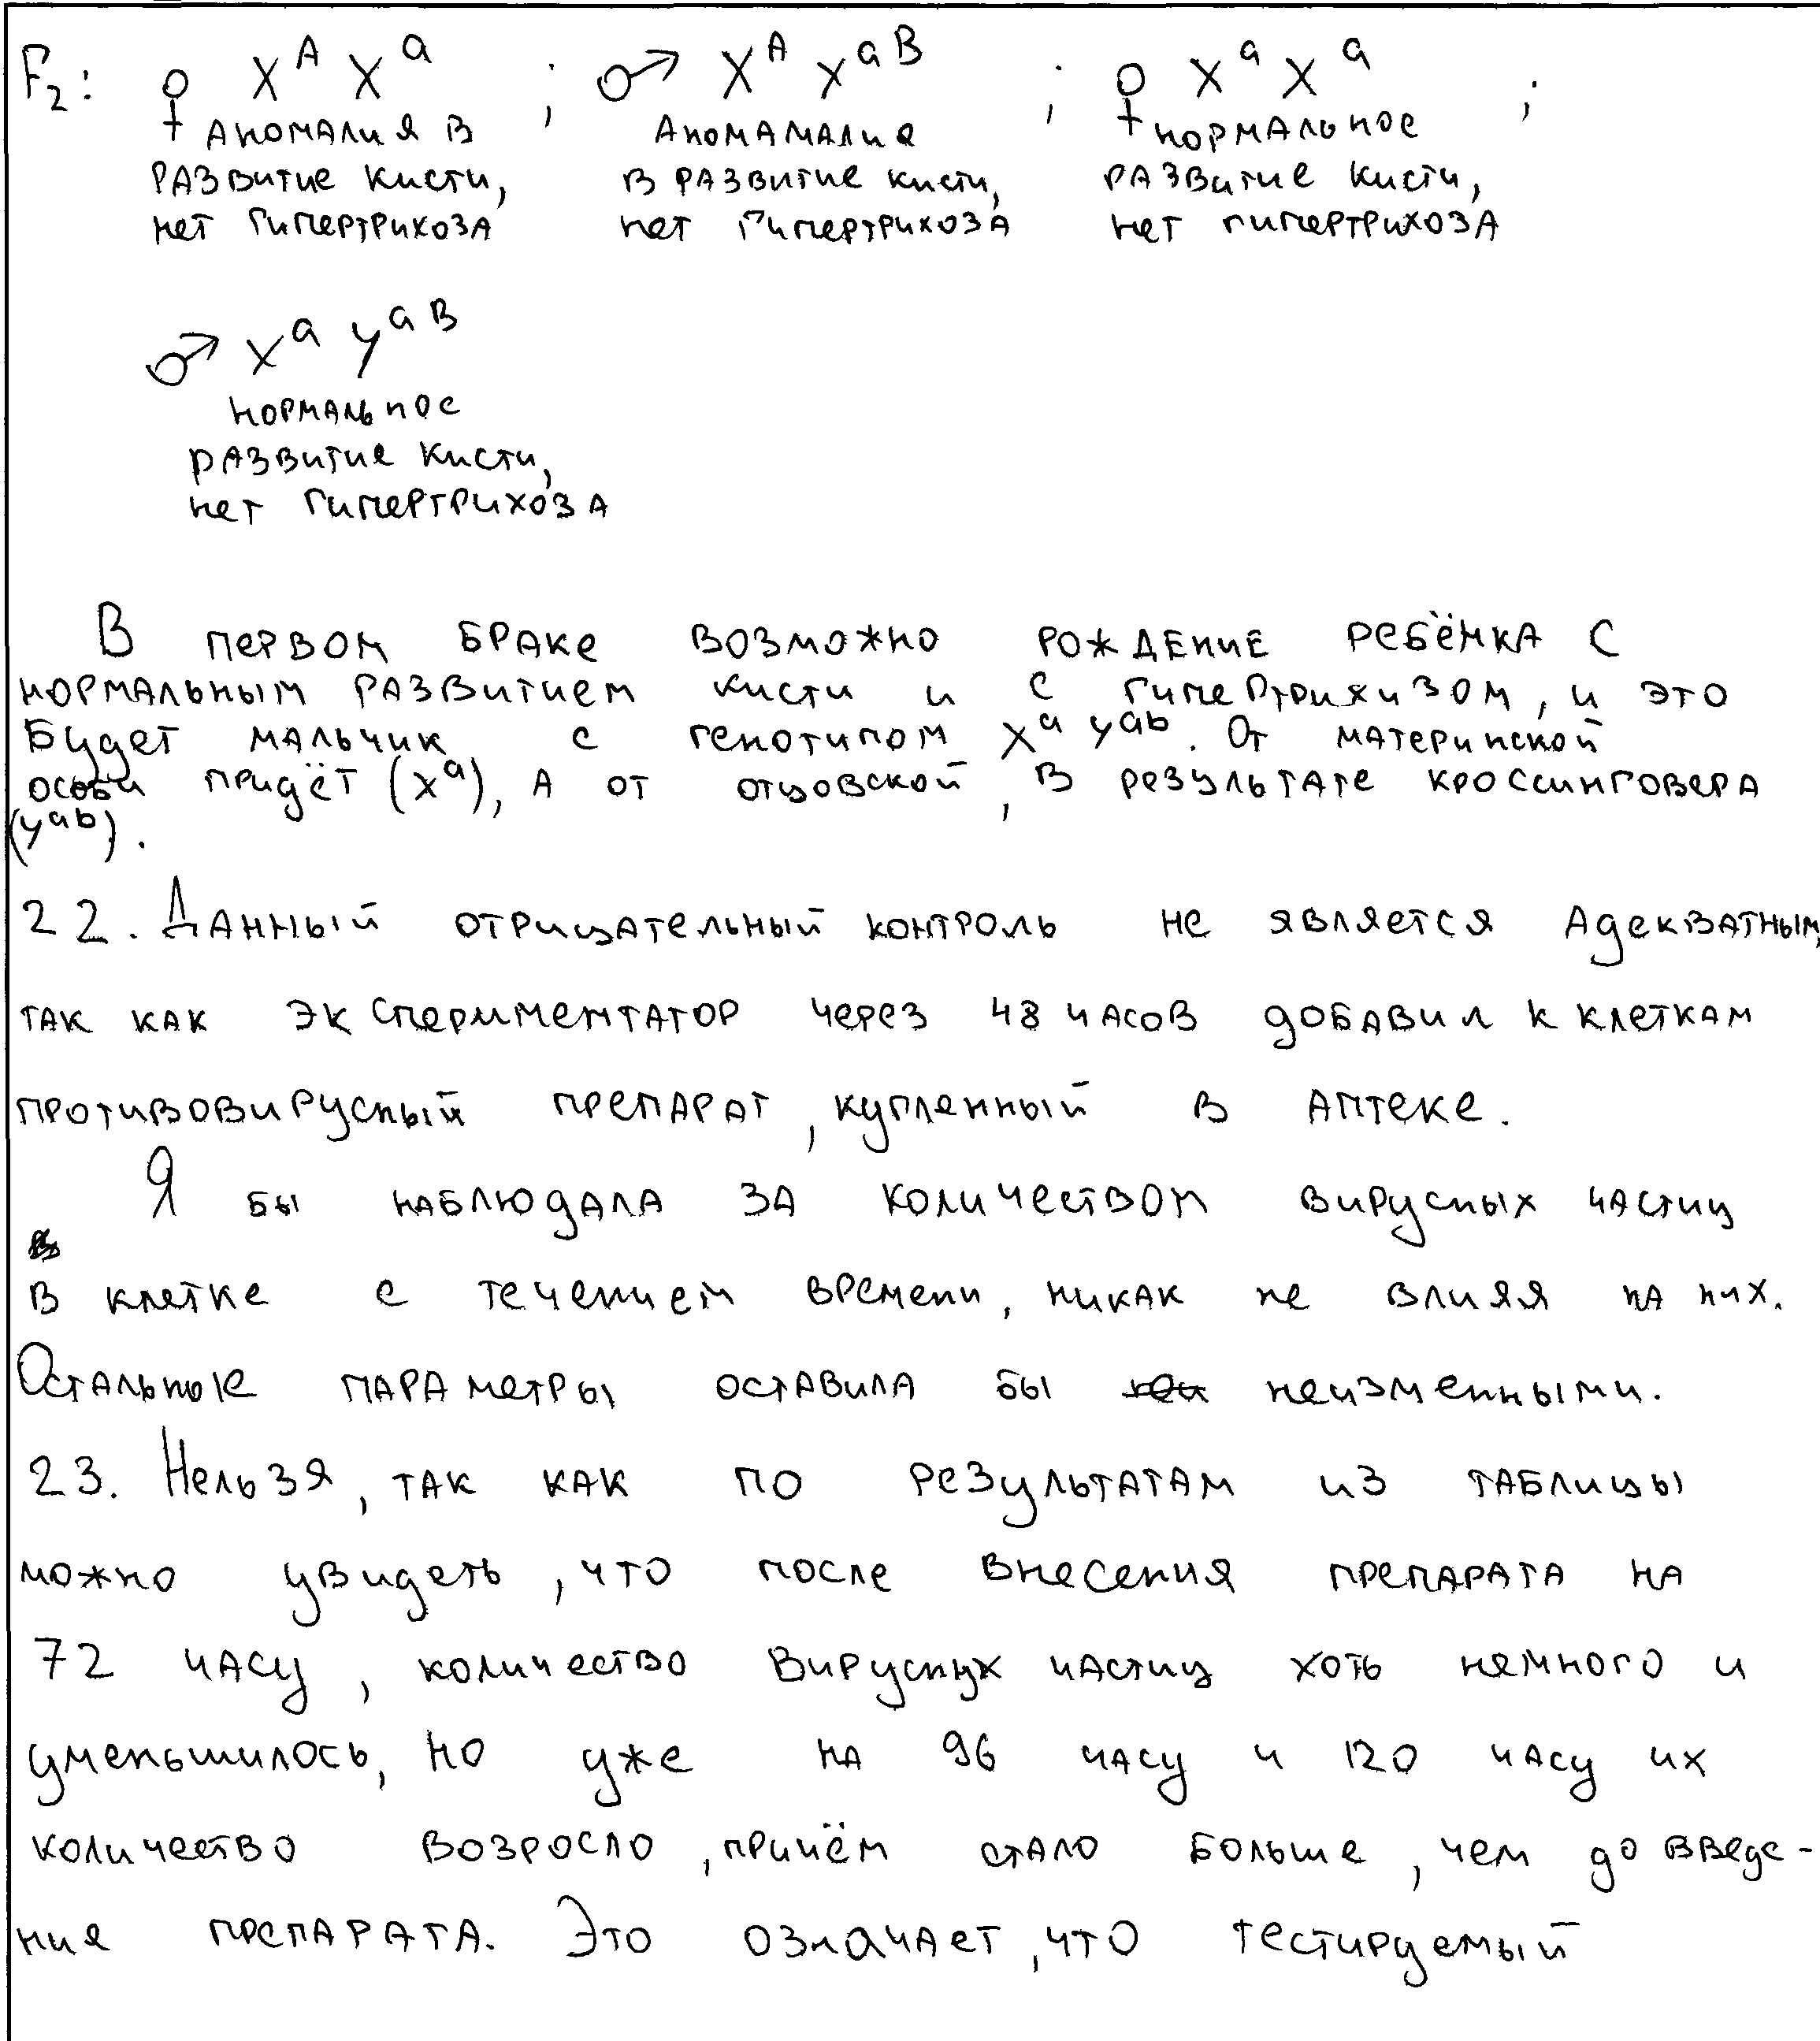 F₂: ♀ X^A X^a ; ♂ X^A X^aB ; ♀ X^a X^a ;
Аномалия в Аномамалие нормальное
развитие кисти, в развитие кисти, развитие кисти,
нет гипертрихоза нет гипертрихоза нет гипертрихоза
♂ X^a y^aB
нормальное
развитие кисти,
нет гипертрихоза
В первом браке возможно рождение ребёнка с
нормальным развитием кисти и с гипертрихизом, и это
будет мальчик с генотипом X^a y^ab. От материнской
особи придёт (X^a), а от отцовской, в результате кроссинговера
(y^ab).
22. Данный отрицательный контроль не является адекватным,
так как экспериментатор через 48 часов добавил к клеткам
противовирусный препарат, купленный в аптеке.
Я бы наблюдала за количеством вирусных частиц
в клетке с течением времени, никак не влияя на них.
Остальные параметры оставила бы неизменными.
23. Нельзя, так как по результатам из таблицы
можно увидеть, что после внесения препарата на
72 часу, количество вирусных частиц хоть немного и
уменьшилось, но уже на 96 часу и 120 часу их
количество возросло, причём стало больше, чем до введе-
ния препарата. Это означает, что тестируемый